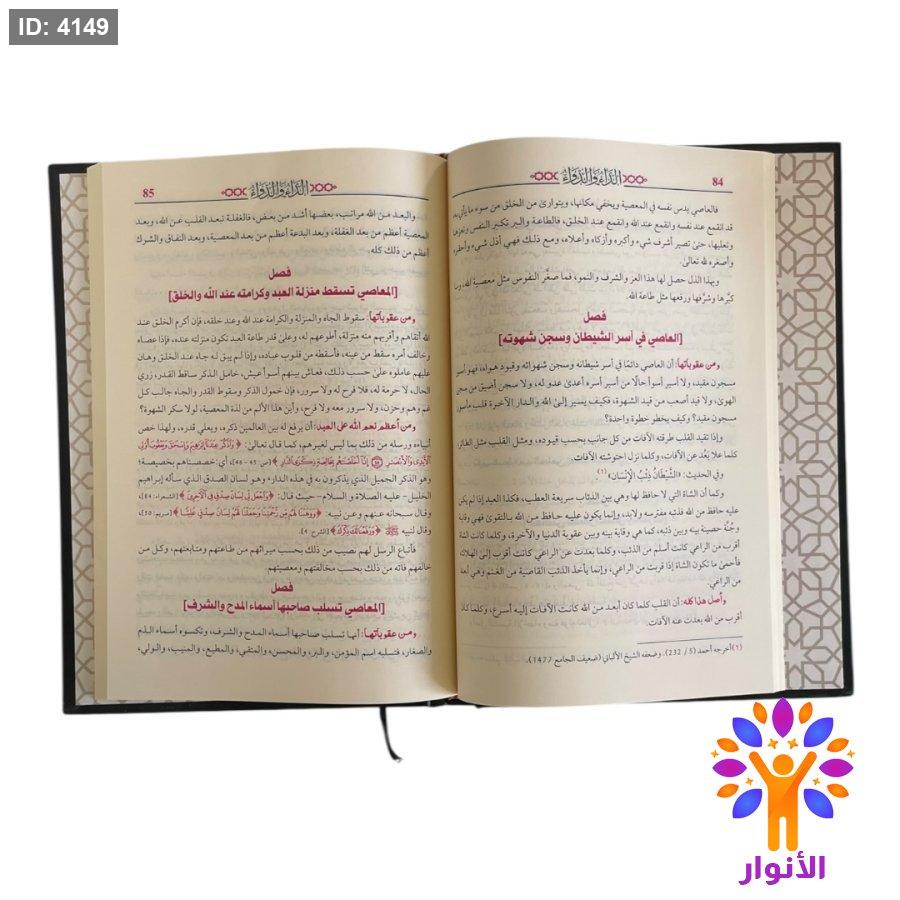 ID: 4149
84
الداء والدواء
فالعاصي يدس نفسه في المعصية ويخفي مكانها، ويتوارى من الخلق من سوء ما يأتي به
قد انقمع عند نفسه وانقمع عند الله وانقمع عند الخلق، فالطاعة والبر تكبر النفس وتعزها
وتعليها، حتى تصير أشرف شيء وأكبره وأزكاه وأعلاه، ومع ذلك فهي أذل شيء وأحقره
وأصغره لله تعالى.
وبهذا الذل حصل لها هذا العز والشرف والنمو، فما صغّر النفوس مثل معصية الله، وما
كبَّرها وشرَّفها ورفعها مثل طاعة الله.
فصل
[العاصي في أسر الشيطان وسجن شهوته]
ومن عقوباتها: أن العاصي دائمًا في أسر شيطانه وسجن شهواته وقيود هواه، فهو أسير
مسجون مقيد، ولا أسير أسوأ حالًا من أسير أسره أعدى عدو له، ولا سجن أضيق من سجن
الهوى، ولا قيد أصعب من قيد الشهوة، فكيف يسير إلى الله والدار الآخرة قلب مأسور
مسجون مقيد؟ وكيف يخطو خطوة واحدة؟
وإذا تقيد القلب طرقته الآفات من كل جانب بحسب قيوده، ومثل القلب مثل الطائر،
كلما علا بَعُد عن الآفات، وكلما نزل احتوشته الآفات.
وفي الحديث: «الشَّيْطَانُ ذِئْبُ الْإِنْسَانِ» (١)
وكما أن الشاة التي لا حافظ لها وهي بين الذئاب سريعة العطب، فكذا العبد إذا لم يكن
عليه حافظ من الله فذئبه مفترسه ولابد، وإنما يكون عليه حافظ من الله بالتقوى فهي وقاية
وجُنَّة حصينة بينه وبين ذئبه، كما هي وقاية بينه وبين عقوبة الدنيا والآخرة، وكلما كانت الشاة
أقرب من الراعي كانت أسلم من الذئب، وكلما بعدت عن الراعي كانت أقرب إلى الهلاك،
فأحمى ما تكون الشاة إذا قربت من الراعي، وإنما يأخذ الذئب القاصية من الغنم وهي أبعد
من الراعي.
وأصل هذا كله: أن القلب كلما كان أبعد من الله كانت الآفات إليه أسرع، وكلما كان
أقرب من الله بعدت عنه الآفات.
(١) أخرجه أحمد (5 / 232)، وضعفه الشيخ الألباني (ضعيف الجامع 1477).
85
الداء والدواء
والبعد من الله مراتب، بعضها أشد من بعض، فالغفلة تبعد القلب عن الله، وبعد
المعصية أعظم من بعد الغفلة، وبعد البدعة أعظم من بعد المعصية، وبعد النفاق والشرك
أعظم من ذلك كله.
فصل
[المعاصي تسقط منزلة العبد وكرامته عند الله والخلق]
ومن عقوباتها: سقوط الجاه والمنزلة والكرامة عند الله وعند خلقه، فإن أكرم الخلق عند
الله أتقاهم وأقربهم منه منزلة، أطوعهم له، وعلى قدر طاعة العبد تكون منزلته عنده، فإذا عصاه
وخالف أمره سقط من عينه، فأسقطه من قلوب عباده، وإذا لم يبق له جاه عند الخلق وهان
عليهم عاملوه على حسب ذلك، فعاش بينهم أسوأ عيش، خامل الذكر ساقط القدر، زري
الحال، لا حرمة له، فلا فرح له ولا سرور، فإن خمول الذكر وسقوط القدر والجاه جالب كل
غم وهم وحزن، ولا سرور معه ولا فرح، وأين هذا الألم من لذة المعصية، لولا سكر الشهوة؟
ومن أعظم نعم الله على العبد: أن يرفع له بين العالمين ذكره، ويعلي قدره، ولهذا خص
أنبياءه ورسله من ذلك بما ليس لغيرهم، كما قال تعالى: ﴿وَاذْكُرْ عِبَادَنَا إِبْرَاهِيمَ وَإِسْحَاقَ وَيَعْقُوبَ أُولِي
الْأَيْدِي وَالْأَبْصَارِ إِنَّا أَخْلَصْنَاهُمْ بِخَالِصَةٍ ذِكْرَى الدَّارِ﴾ [ص: ٤٥-٤٦]، أي: خصصناهم بخصيصة؛
وهو الذكر الجميل الذي يذكرون به في هذه الدار، وهو لسان الصدق الذي سأله إبراهيم
الخليل- عليه الصلاة والسلام- حيث قال: ﴿وَاجْعَلْ لِي لِسَانَ صِدْقٍ فِي الْآخِرِينَ﴾ [الشعراء: ٨٤]،
وقال سبحانه عنهم وعن نبيه: ﴿وَوَهَبْنَا لَهُمْ مِنْ رَحْمَتِنَا وَجَعَلْنَا لَهُمْ لِسَانَ صِدْقٍ عَلِيًّا﴾ [مريم: ٥٠]،
وقال لنبيه ﷺ: ﴿وَرَفَعْنَا لَكَ ذِكْرَكَ﴾ [الشرح: ٤].
فأتباع الرسل لهم نصيب من ذلك بحسب ميراثهم من طاعتهم ومتابعتهم، وكل من
خالفهم فاته من ذلك بحسب مخالفتهم ومعصيتهم.
فصل
[المعاصي تسلب صاحبها أسماء المدح والشرف]
ومن عقوباتها: أنها تسلب صاحبها أسماء المدح والشرف، وتكسوه أسماء الذم
والصغار، فتسلبه اسم المؤمن، والبر، والمحسن، والمتقي، والمطيع، والمنيب، والولي،
الأنوار